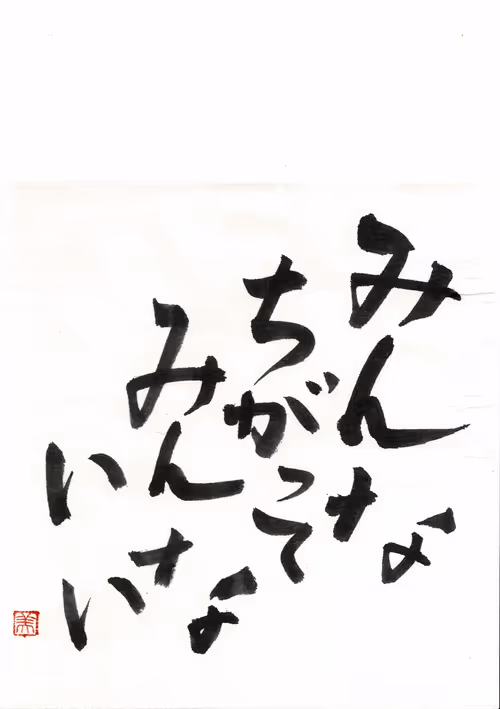 みんな
ちがって
みんな
いい
美